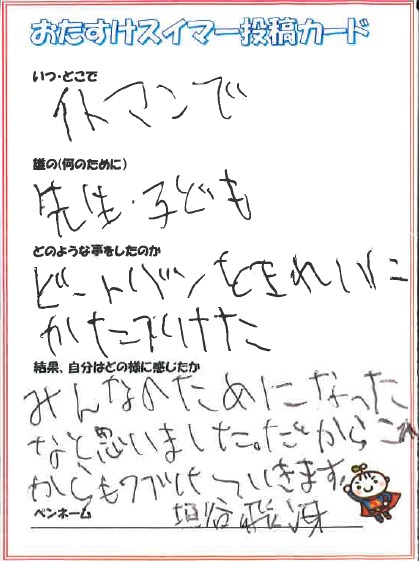 おたすけスイマー投稿カード
いつ・どこで
イトマンで
誰の(何のために)
先生・子ども
どのような事をしたのか
ビートバンをきれいに
かたづけた
結果、自分はどの様に感じたか
みんなのためになった
なと思いました。だからこれ
からもつづけていきます。
ペンネーム
垣谷